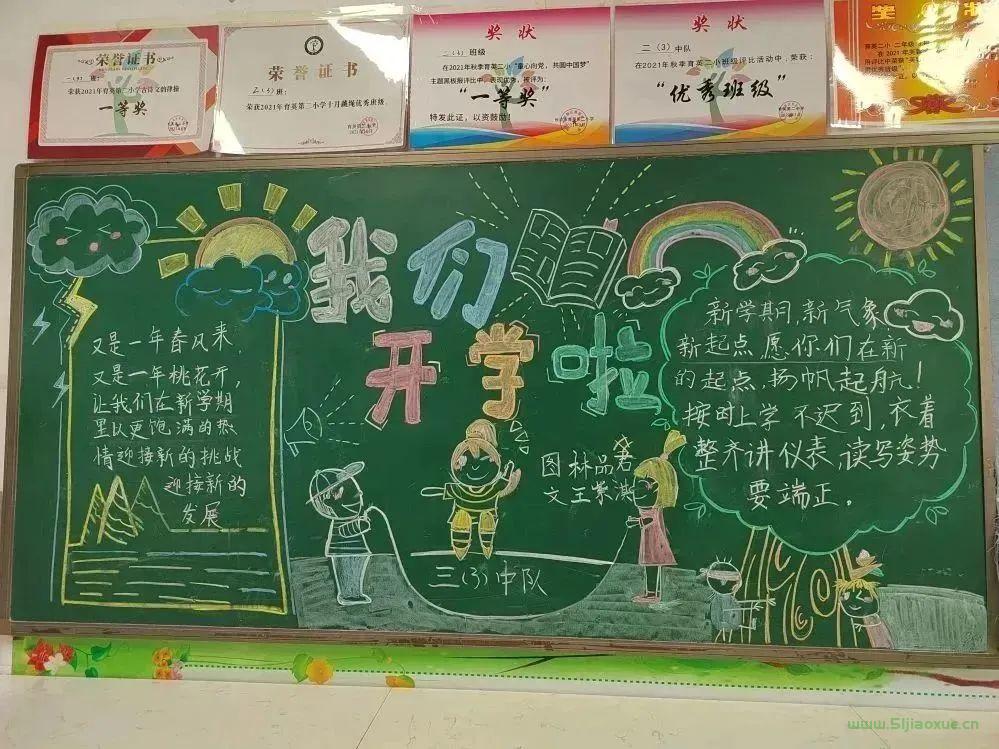 荣誉证书
二(3)班:
荣获2021年育英第二小学古诗文韵律操
一等奖
荣誉证书
2(3)班:
荣获2021年育英第二小学十月跳绳优秀班级。
奖状
二(3)班级
在2021年秋季育英二小“童心向党,共圆中国梦”
主题黑板报评比中,表现优秀,被评为:
“一等奖”
特发此证,以资鼓励!
奖状
二(3)中队
在2021年秋季育英二小班级评比活动中,荣获:
“优秀班级”
我们
开学啦
又是一年春风来,
又是一年桃花开,
让我们在新学期
里以更饱满的热
情迎接新的挑战
迎接新的
发展
图林品君
文王紫
三(3)中队
新学期,新气象
新起点愿你们在新
的起点,扬帆起航!
按时上学不迟到,衣着
整齐讲仪表,读写姿势
要端正。
www.51jiaoxue.cn